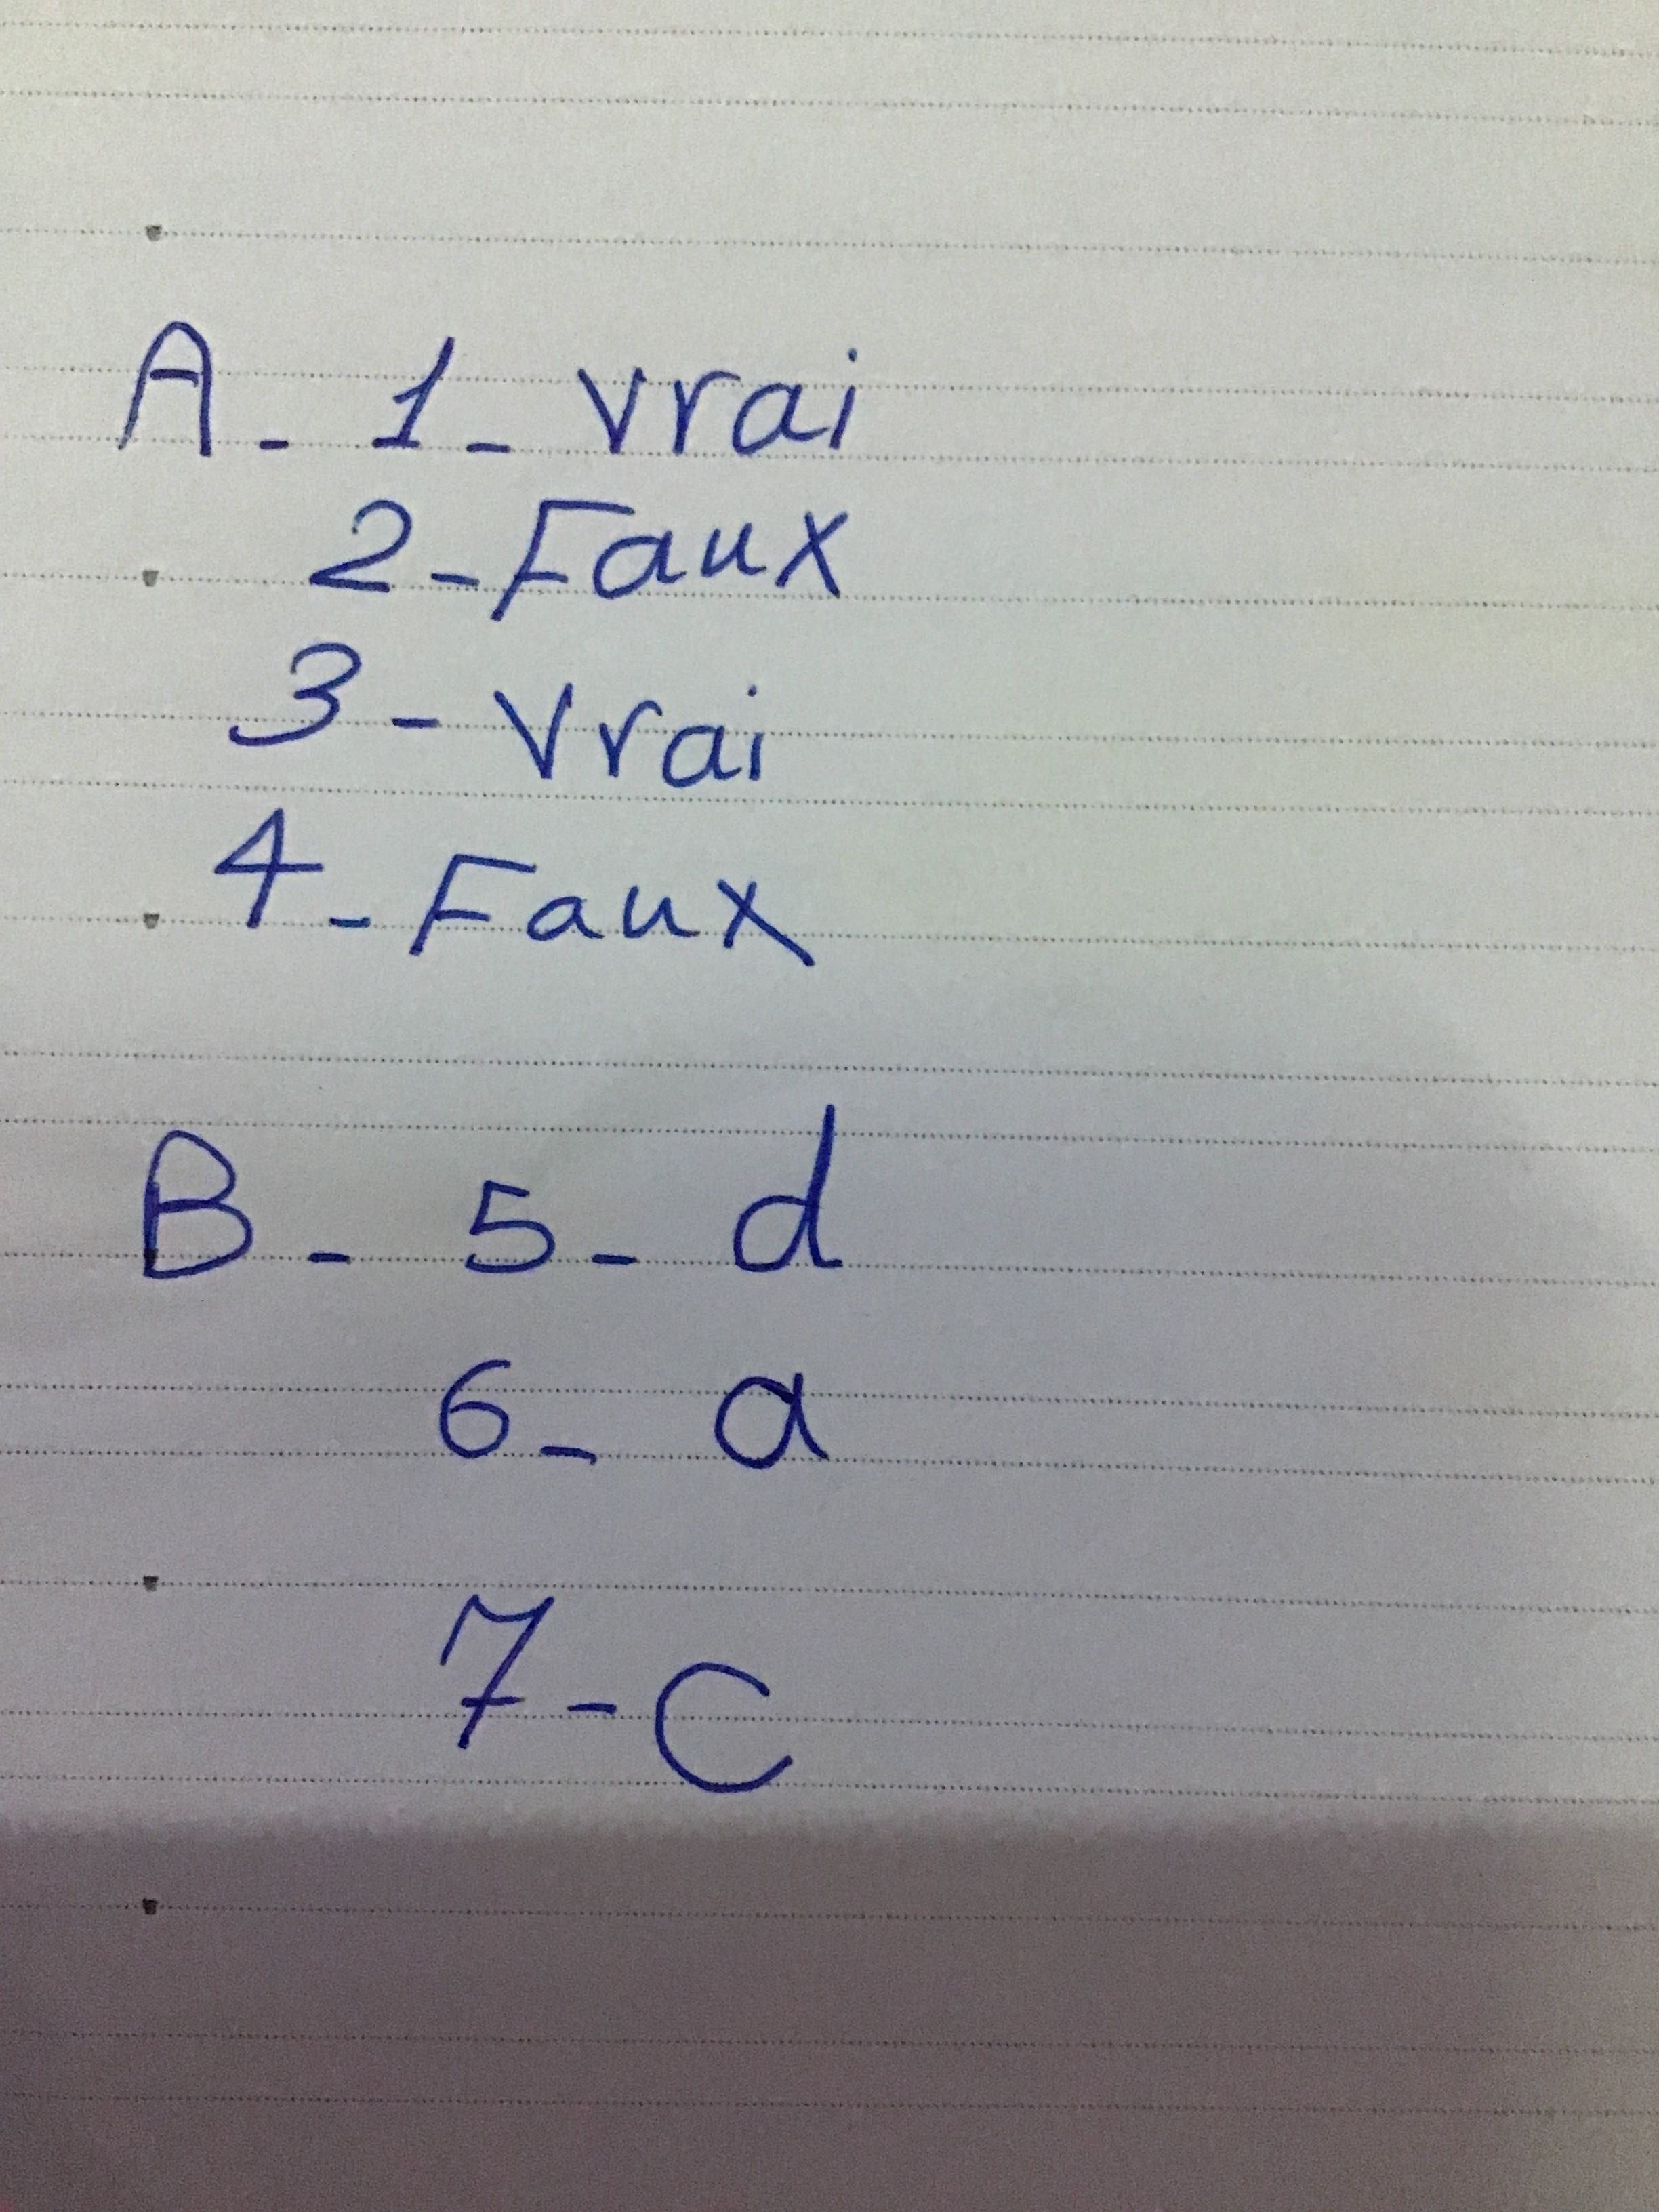 A- 1- vrai
2- Faux
3- Vrai
4- Faux
B- 5- d
6- a
7- C